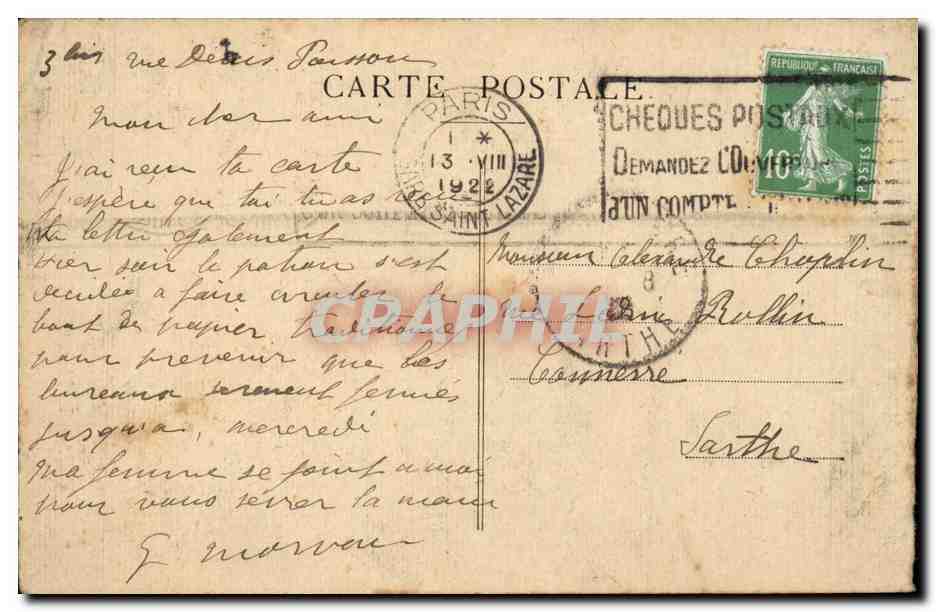 3 bis rue Denis Poisson
CARTE POSTALE
Mon cher ami
J'ai reçu ta carte
J'espère que toi tu as
Ma lettre également
Hier soir le patron s'est
décidée a faire circuler le
bout de papier traditionnel
pour prevenir que les
bureaux seraient fermés
jusqu'a, mercredi
Ma femme se joint a moi
pour vous sérer la main
G Morvan
PARIS
1 *
13 VIII
1922
GARE SAINT LAZARE
CHEQUES POSTAUX
DEMANDEZ L'OUVERTURE
d'UN COMPTE
REPUBLIQUE FRANÇAISE
10c
POSTES
Monsieur Alexandre Chaplin
rue Ledru Rollin
Connerré
Sarthe
8
SARTHE
CPAPHIL